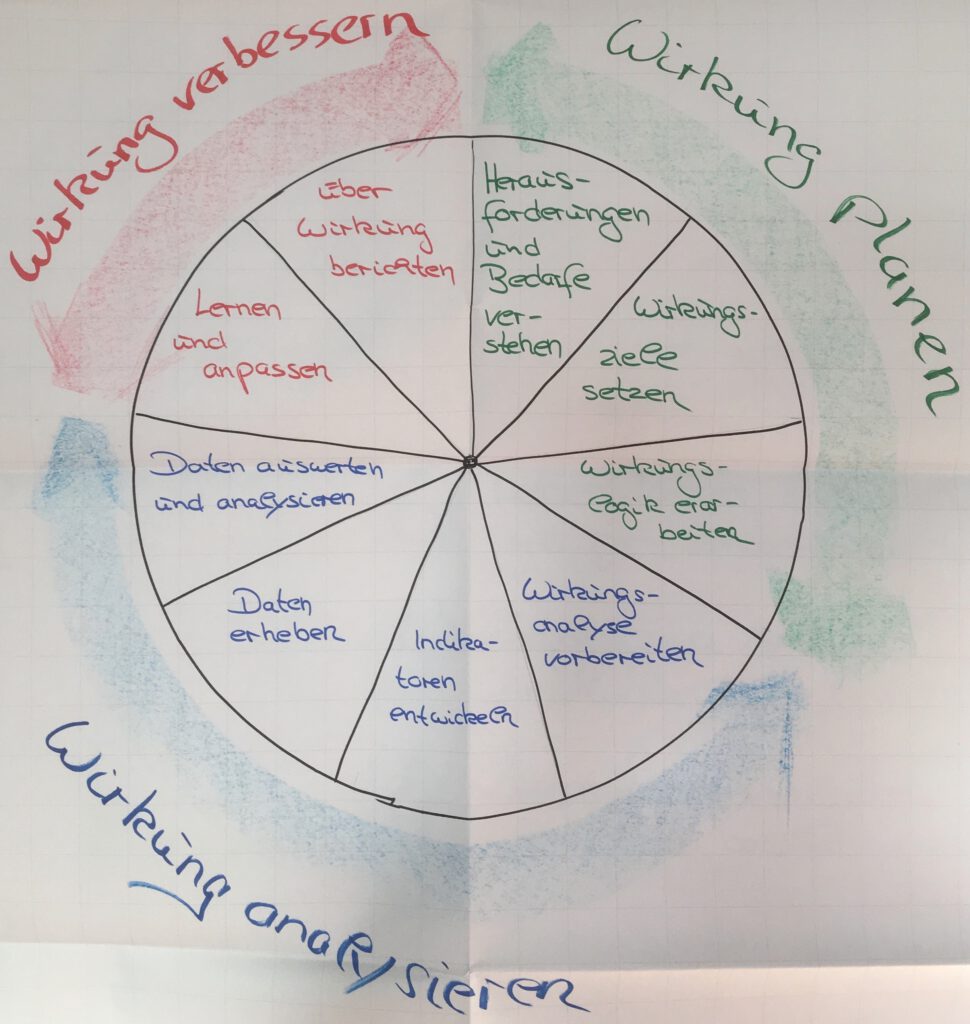 Wirkung verbessern
Wirkung planen
Heraus-
forderungen
und
Bedarfe
ver-
stehen
Wirkungs-
ziele
setzen
Wirkungs-
logik erar-
beiten
Wirkungs-
analyse
vorbereiten
Indika-
toren
entwickeln
Daten
erheben
Daten auswerten
und analysieren
Lernen
und
anpassen
über
Wirkung
berichten
Wirkung analysieren